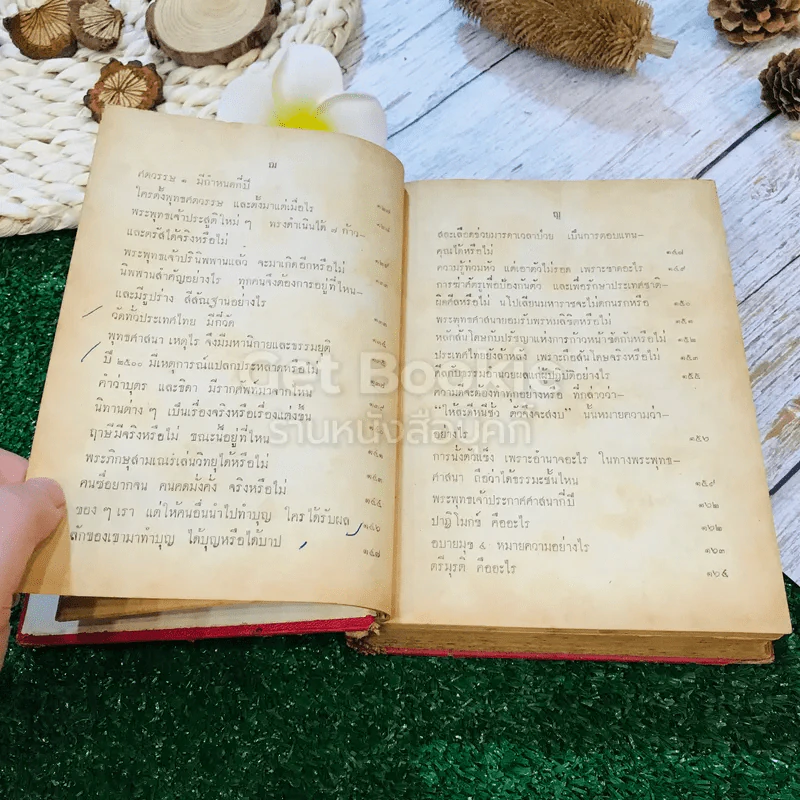 ฌ
ศตวรรษ ๑ มีกำหนดกี่ปี
ใครตั้งพุทธศตวรรษ และตั้งมาแต่เมื่อไร
พระพุทธเจ้าประสูติใหม่ ๆ ทรงดำเนินได้ ๗ ก้าว—
และตรัสได้จริงหรือไม่
พระพุทธเจ้าปรินิพพานแล้ว จะมาเกิดอีกหรือไม่
นิพพานสำคัญอย่างไร ทุกคนจึงต้องการอยู่ที่ไหน—
และมีรูปร่าง สีสัณฐานอย่างไร
วัดทั่วประเทศไทย มีกี่วัด
พุทธศาสนา เหตุไร จึงมีมหานิกายและธรรมยุติ
ปี ๒๕๐๐ มีเหตุการณ์แปลกประหลาดหรือไม่
คำว่าบุตร และธิดา มีรากศัพท์มาจากไหน
นิทานต่าง ๆ เป็นเรื่องจริงหรือเรื่องแต่งขึ้น
ฤาษีมีจริงหรือไม่ ขณะนี้อยู่ที่ไหน
พระภิกษุสามเณรเล่นวิทยุได้หรือไม่
คนซื่อยากจน คนคดมั่งคั่ง จริงหรือไม่ ๑๔๕
ของ ๆ เรา แต่ให้คนอื่นนำไปทำบุญ ใครได้รับผล ๑๔๖
ลักของเขามาทำบุญ ได้บุญหรือได้บาป ๑๔๗
ญ
สละเลือดช่วยมารดาเวลาป่วย เป็นการตอบแทน—
คุณได้หรือไม่ ๑๔๗
ความรู้ท่วมหัว แต่เอาตัวไม่รอด เพราะขาดอะไร ๑๔๙
การฆ่าศัตรูเพื่อป้องกันตัว และเพื่อรักษาประเทศชาติ—
ผิดศีลหรือไม่ นโปเลียนมหาราชจะไม่ตกนรกหรือ ๑๕๐
พระพุทธศาสนายอมรับพรหมลิขิตหรือไม่ ๑๕๒
หลักสันโดษกับปรัชญาแห่งการก้าวหน้าขัดกันหรือไม่
ประเทศไทยยังล้าหลัง เพราะถือสันโดษจริงหรือไม่ ๑๕๓
ศีลกับธรรมอำนวยผลแก่ผู้ปฏิบัติอย่างไร ๑๕๕
ความดีจะต้องทำทุกอย่างหรือ ที่กล่าวว่า—
“ ให้ละดีหนีชั่ว ตัวจึงจะสงบ ” นั้นหมายความว่า—
อย่างไร ๑๕๖
การนั่งตัวแข็ง เพราะอำนาจอะไร ในทางพระพุทธ—
ศาสนา ถือว่าได้ธรรมะชั้นไหน ๑๕๙
พระพุทธเจ้าประกาศศาสนากี่ปี ๑๖๒
ปาฏิโมกข์ คืออะไร ๑๖๒
อบายมุข ๔ หมายความอย่างไร ๑๖๓
ตรีมูรติ คืออะไร ๑๖๔
Get Bookie
ร้านหนังสือบุคกี้